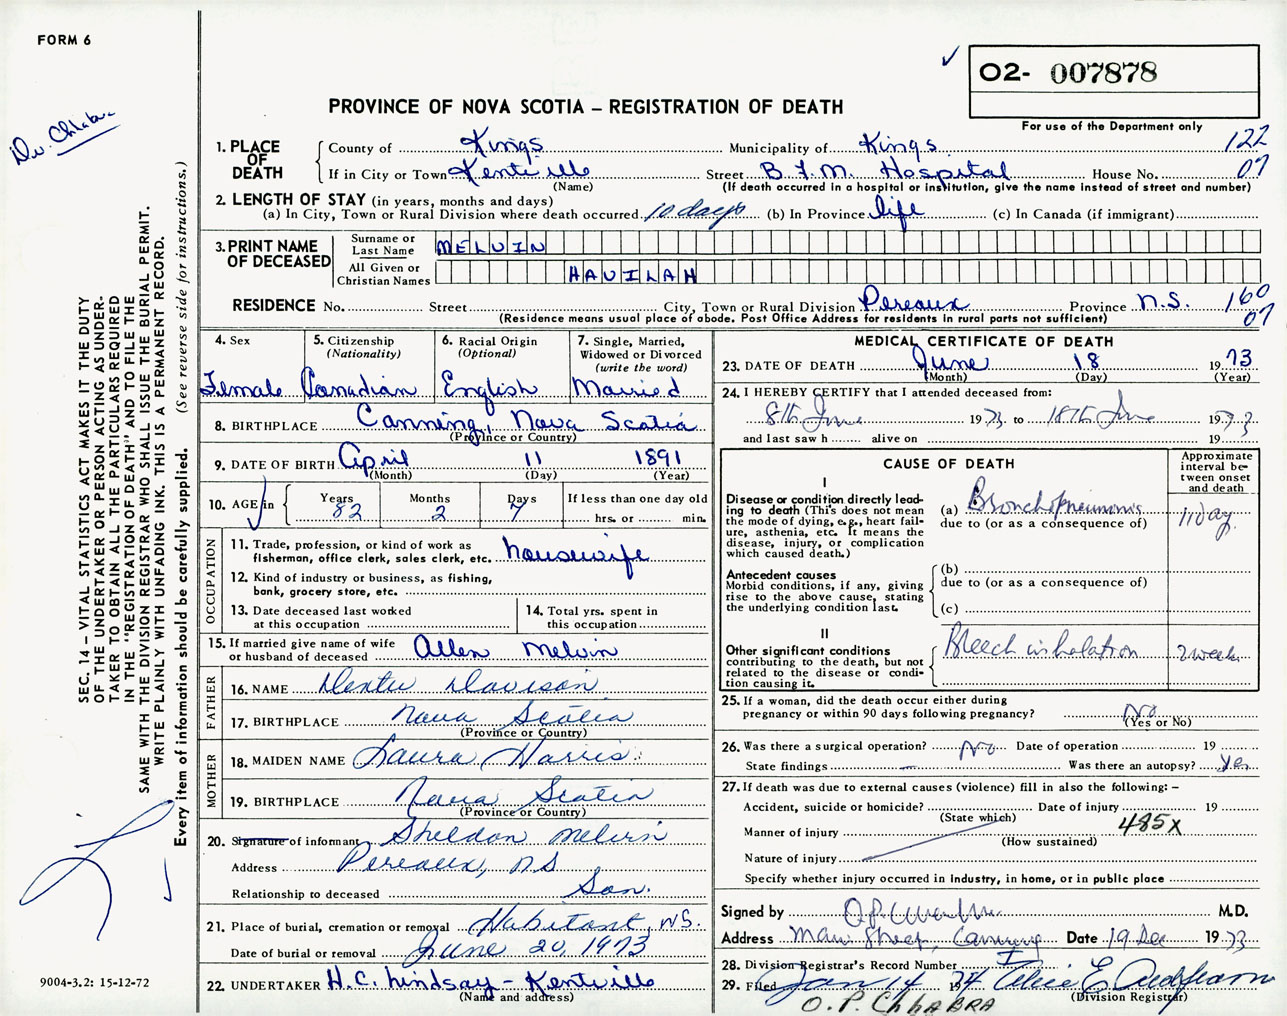 FORM 6
Dr. Chhabra
✓
O2- 007878
PROVINCE OF NOVA SCOTIA – REGISTRATION OF DEATH
For use of the Department only
1. PLACE OF DEATH
County of Kings Municipality of Kings 122
If in City or Town Kentville Street B.F.M. Hospital House No. 07
(Name) (If death occurred in a hospital or institution, give the name instead of street and number)
2. LENGTH OF STAY (in years, months and days)
(a) In City, Town or Rural Division where death occurred. 10 days (b) In Province life (c) In Canada (if immigrant)
3. PRINT NAME OF DECEASED
Surname or Last Name MELVIN
All Given or Christian Names HAVILAH
RESIDENCE No. Street City, Town or Rural Division Pereaux Province N.S. 160
(Residence means usual place of abode. Post Office Address for residents in rural parts not sufficient) 07
4. Sex
Female
5. Citizenship
(Nationality)
Canadian
6. Racial Origin
(Optional)
English
7. Single, Married, Widowed or Divorced
(write the word)
Married
8. BIRTHPLACE Canning, Nova Scotia
(Province or Country)
9. DATE OF BIRTH April 11 1891
(Month) (Day) (Year)
10. AGE in
Years Months Days If less than one day old
82 2 7 hrs. or min.
OCCUPATION
11. Trade, profession, or kind of work as fisherman, office clerk, sales clerk, etc. housewife
12. Kind of industry or business, as fishing, bank, grocery store, etc.
13. Date deceased last worked at this occupation
14. Total yrs. spent in this occupation
15. If married give name of wife or husband of deceased Allen Melvin
FATHER
16. NAME Dexter Davison
17. BIRTHPLACE Nova Scotia
(Province or Country)
MOTHER
18. MAIDEN NAME Laura Harris
19. BIRTHPLACE Nova Scotia
(Province or Country)
20. Signature of informant Sheldon Melvin
Address Pereaux, N.S
Relationship to deceased Son.
21. Place of burial, cremation or removal Habitant, N.S.
Date of burial or removal June 20, 1973
22. UNDERTAKER H.C. Lindsay – Kentville
(Name and address)
MEDICAL CERTIFICATE OF DEATH
23. DATE OF DEATH June 18 1973
(Month) (Day) (Year)
24. I HEREBY CERTIFY that I attended deceased from:
8th June 1973 to 18th June 1973
and last saw h alive on 19
CAUSE OF DEATH
Approximate interval between onset and death
I
Disease or condition directly leading to death (This does not mean the mode of dying, e.g., heart failure, asthenia, etc. It means the disease, injury, or complication which caused death.)
(a) Bronchopneumonia 11 day.
due to (or as a consequence of)
Antecedent causes
Morbid conditions, if any, giving rise to the above cause, stating the underlying condition last.
(b)
due to (or as a consequence of)
(c)
II
Other significant conditions contributing to the death, but not related to the disease or condition causing it.
Bleech inhalation 2 weeks
25. If a woman, did the death occur either during pregnancy or within 90 days following pregnancy? No
(Yes or No)
26. Was there a surgical operation? No Date of operation 19
State findings – Was there an autopsy? Yes
27. If death was due to external causes (violence) fill in also the following: –
Accident, suicide or homicide? Date of injury 19
(State which) 485X
Manner of injury
(How sustained)
Nature of injury
Specify whether injury occurred in industry, in home, or in public place
Signed by O.P. Chhabra M.D.
Address Main Street, Canning Date 19 Dec 1973
28. Division Registrar's Record Number I
29. Filed Jan 14 1974 Alice E.
(Division Registrar)
O.P. ChhABRA
SEC. 14 – VITAL STATISTICS ACT MAKES IT THE DUTY
OF THE UNDERTAKER OR PERSON ACTING AS UNDERTAKER TO OBTAIN ALL THE PARTICULARS REQUIRED
IN THE "REGISTRATION OF DEATH" AND TO FILE THE
SAME WITH THE DIVISION REGISTRAR WHO SHALL ISSUE THE BURIAL PERMIT.
WRITE PLAINLY WITH UNFADING INK. THIS IS A PERMANENT RECORD.
Every item of information should be carefully supplied. (See reverse side for instructions.)
9004-3.2: 15-12-72